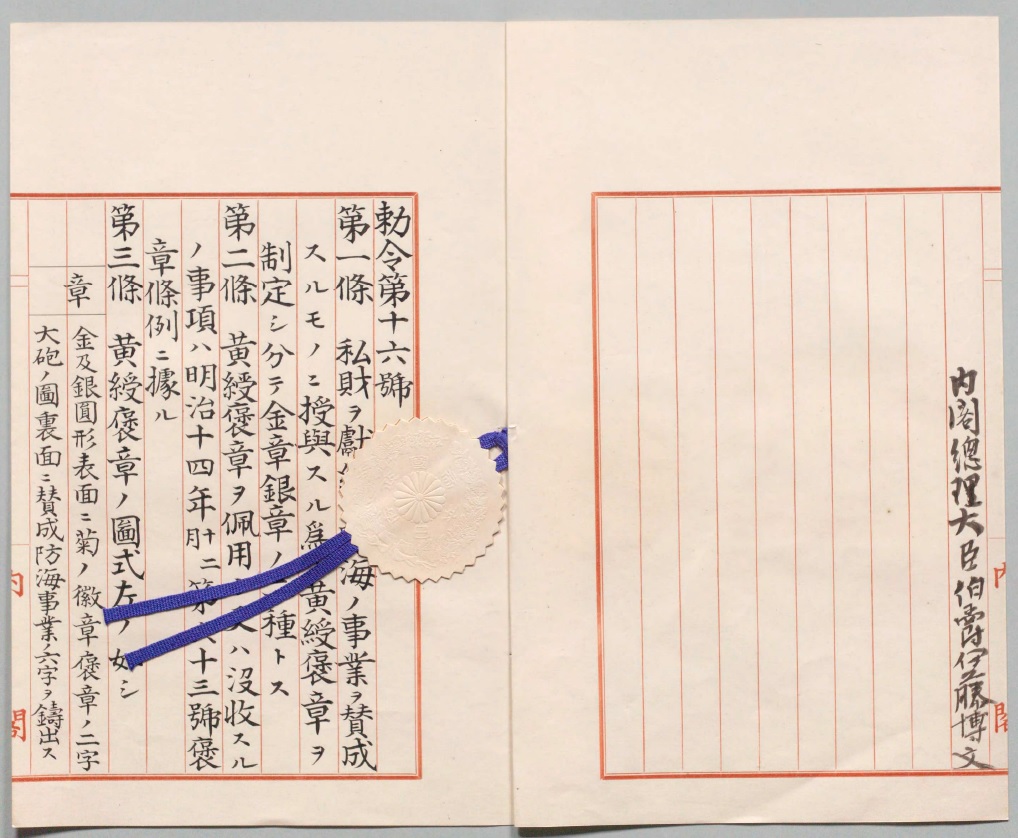 內閣總理大臣伯爵伊藤博文
內閣
勅令第十六號
第一條　私財ヲ獻 海ノ事業ヲ贊成
スルモノニ授與スル爲 黃綬褒章ヲ
制定シ分テ金章銀章ノ 種トス
第二條　黃綬褒章ヲ佩用 又ハ沒收スル
ノ事項ハ明治十四年十二月第 十三號褒
章條例ニ據ル
第三條　黃綬褒章ノ圖式左ノ如シ
章
金及銀圓形表面ニ菊ノ徽章褒章ノ二字
大砲ノ圖裏面ニ贊成防海事業ノ六字ヲ鑄出ス
內閣